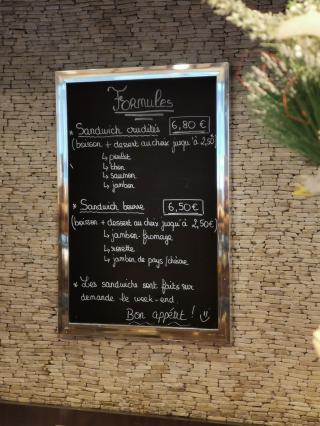 Formules
* Sandwich crudités 6,80 €
(boisson + dessert au choix jusqu'à 2,50
↳ poulet
↳ thon
↳ saumon
↳ jambon
* Sandwich beurre 6,50€
(boisson + dessert au choix jusqu'à 2,50€)
↳ jambon-fromage
↳ rosette
↳ jambon de pays/chèvre
* Les sandwichs sont faits sur
demande le week-end.
Bon appétit ! :)